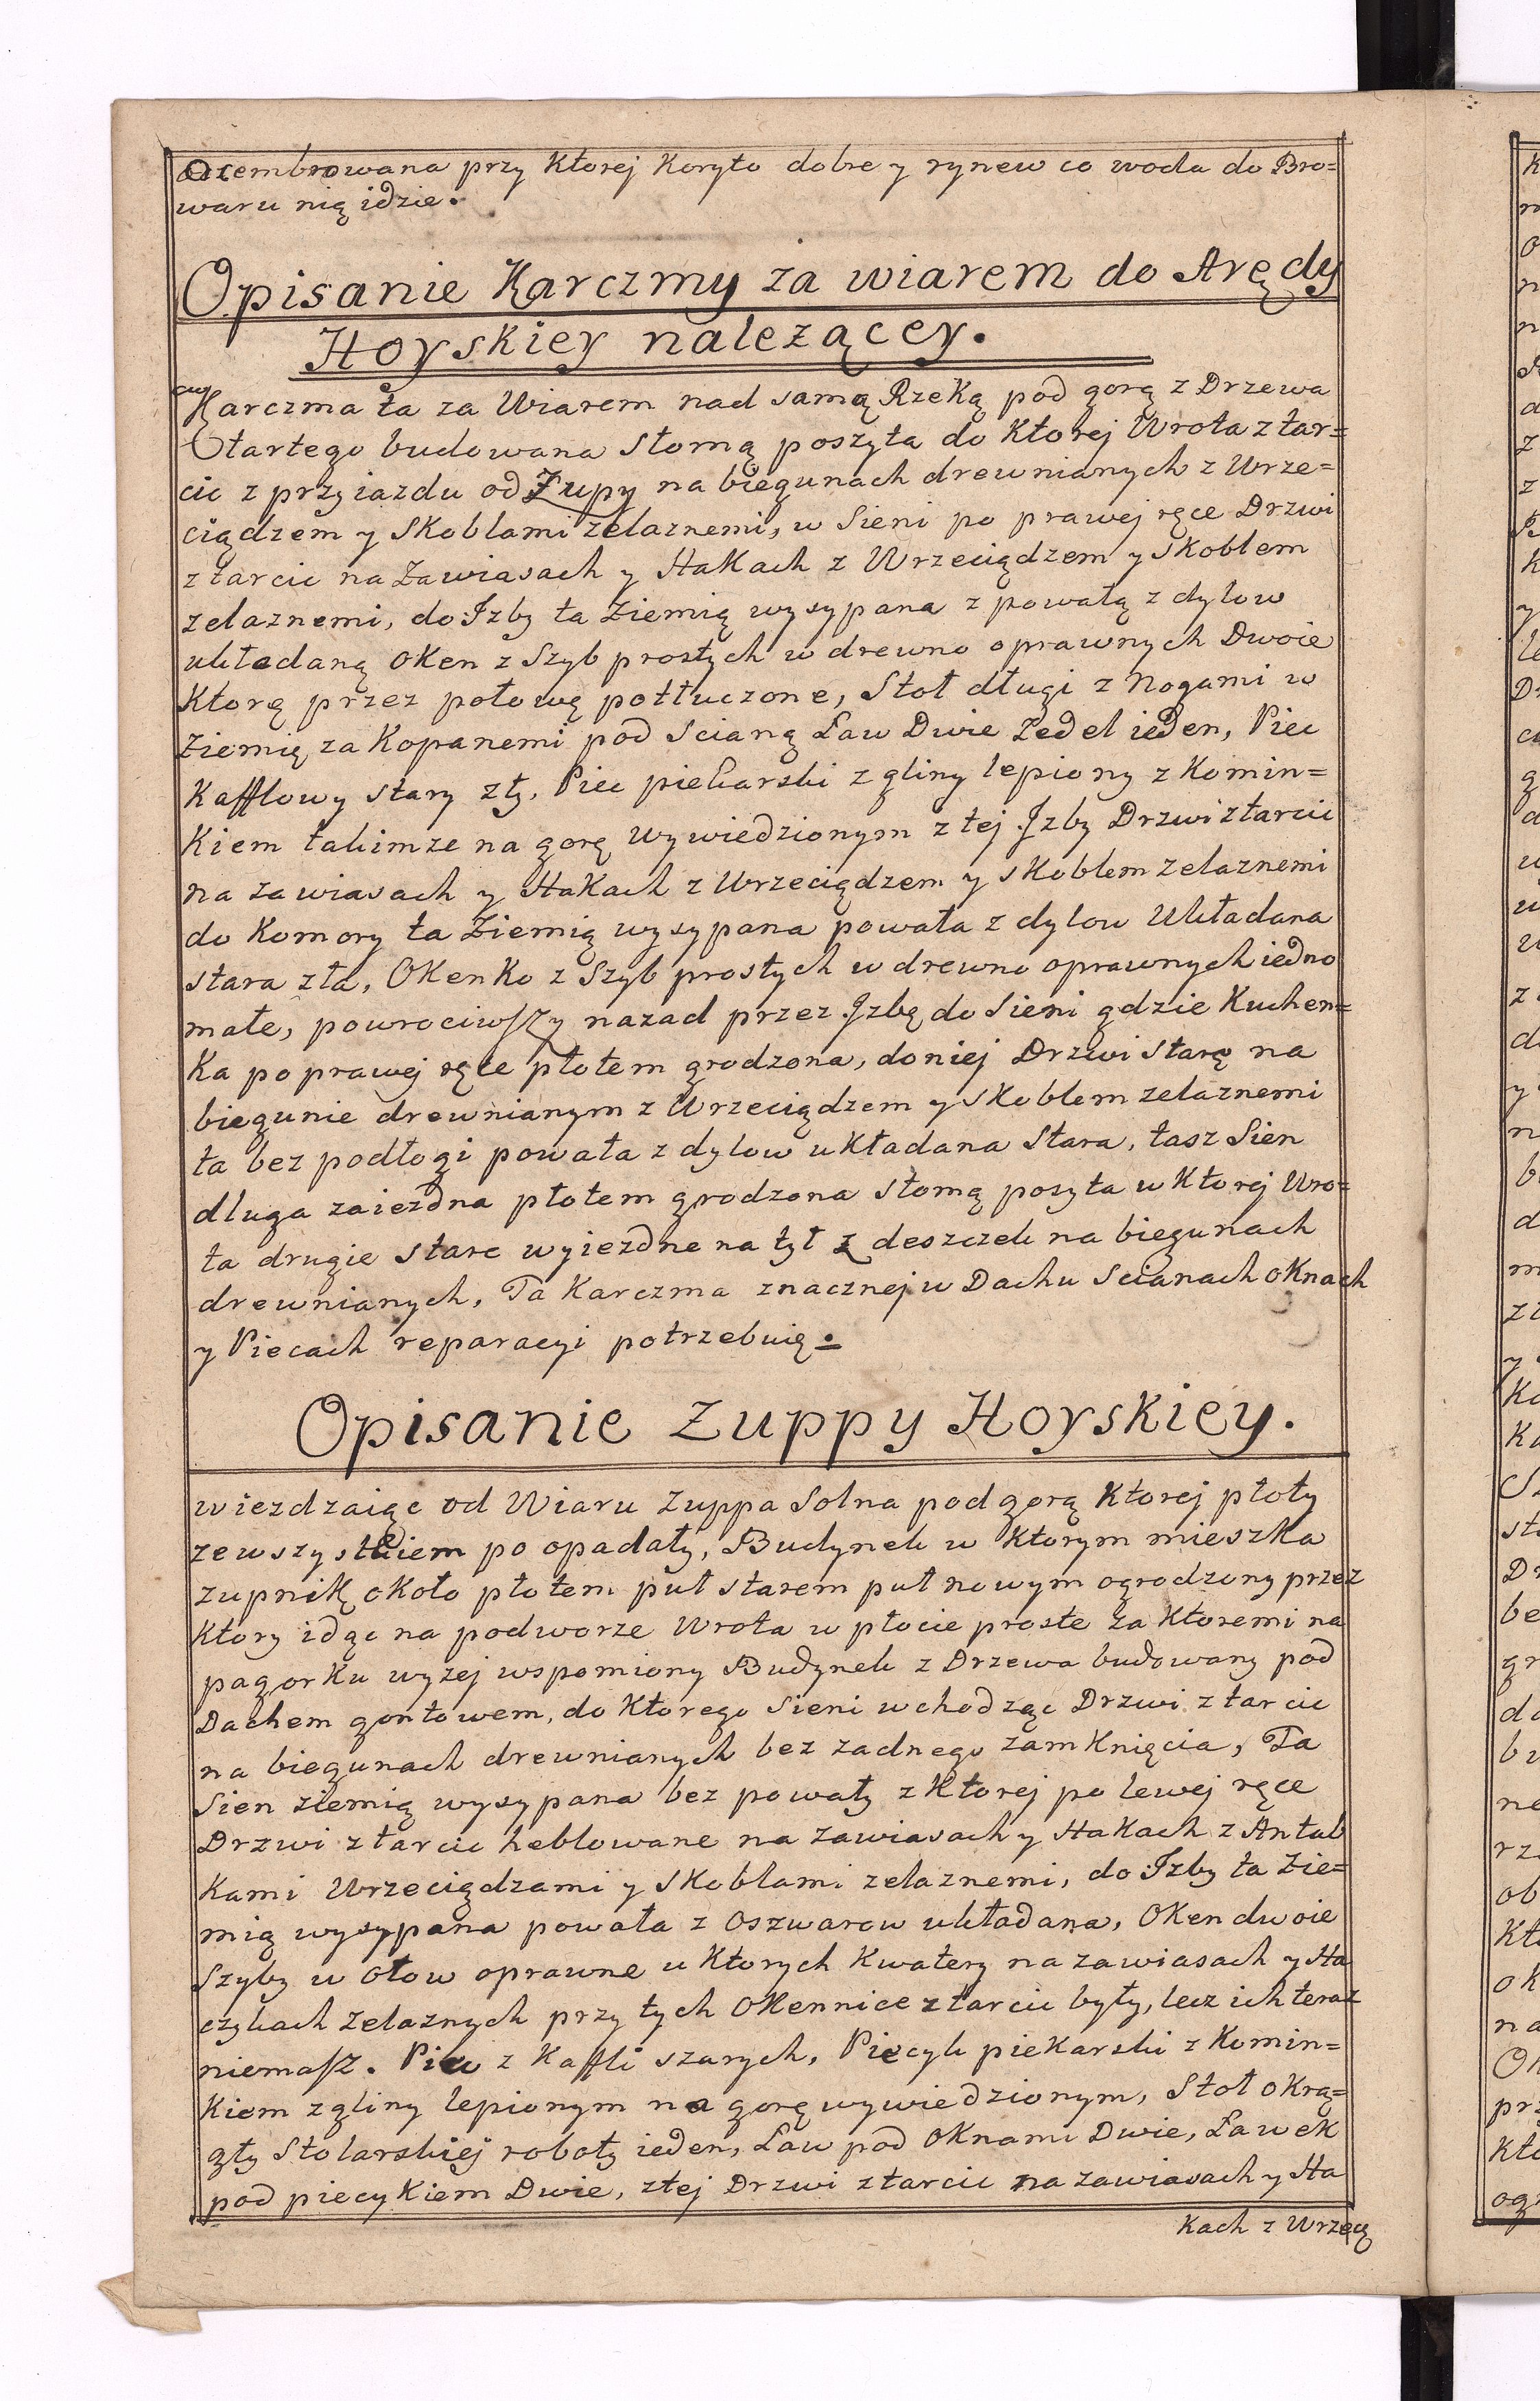 Ocembrowana przy Ktorej Koryto dobre y rynew co woda do Bro=
waru nią idzie.
Opisanie Karczmy za wiarem do Arędy
Hoyskiey nalezącey.
Karczma ta za Wiarem nad samą Rzeką pod gorą z Drzewa
Startego budowana Słomą poszyta do Ktorej Wrota z tar=
cic z przyiazdu od Zupy na biegunach drewnianych z Wrze=
ciądzem y Skoblami zelaznemi, w Sieni po prawej ręce Drzwi
z tarcic na Zawiasach y Hakach z Wrzeciądzem y skoblem
zelaznemi, do Izby ta Ziemią wysypana z powałą z dylow
układaną Oken z Szyb prostych w drewno oprawnych Dwoie
Ktorę przez połowę potłuczone, Stoł długi z Nogami w
Ziemię za Kopanemi pod Scianą Ław Dwie Zedel ieden, Piec
Kafflowy stary zły, Piec piekarski z gliny lepiony z Komin=
Kiem takimze na gorę wywiedzionym z tej Izby Drzwi z tarcic
na zawiasach y Hakach z Wrzeciądzem y skoblem zelaznemi
do Komory ta Ziemią wysypana powała z dylow Układana
stara zła, OkenKo z Szyb prostych w drewno oprawnych iedno
małe, powrociwszy nazad przez Izbę do Sieni gdzie Kuchen=
Ka po prawej ręce płotem grodzona, do niej Drzwi starę na
biegunie drewnianym z Wrzeciądzem y skoblem zelaznemi
ta bez podłogi powała z dylow układana Stara, tasz Sien
dluga zaiezdna płotem grodzona słomą poszyta w Ktorej Wro=
ta drugie stare wyiezdne na tył z deszczek na biegunach
drewnianych, Ta Karczma znacznej w Dachu Scianach oknach
y Piecach reparacyi potrzebuię.
Opisanie Zuppy Hoyskiey.
wiezdzaiąc od Wiaru Zuppa Solna pod gorą Ktorej płoty
zewszystkiem po opadały, Budynek w Ktorym mieszka
Zupnik około płotem puł starem puł nowym ogrodzony przez
Ktory idąc na podworze Wrota w płocie proste za Ktoremi na
pagorku wyzej wspomiony Budynek z Drzewa budowany pod
Dachem gontowem, do Ktorego Sieni wchodząc Drzwi z tarcic
na biegunach drewnianych bez zadnego zamknięcia, Ta
Sien ziemią wysypana bez powały z Ktorej po lewej ręce
Drzwi z tarcic heblowane na zawiasach y Hakach z Antab
Kami Wrzeciądzami y Skoblami zelaznemi, do Izby ta Zie=
mią wysypana powała z Oszwarow układana, Oken dwoie
Szyby w ołow oprawne u Ktorych Kwatery na zawiasach y Ha
czykach Zelaznych przy tych Okennice z tarcic były, lecz ich teraz
niemasz. Piec z Kaffli szarych, Piecyk piekarski z Komin=
Kiem z gliny lepionym na gorę wywiedzionym, Stoł okrą=
gły Stolarskiej roboty ieden, Ław pod Oknami Dwie, Ławek
pod piecykiem Dwie, z tej Drzwi z tarcic na zawiasach y Ha
Kach z Wrzecią